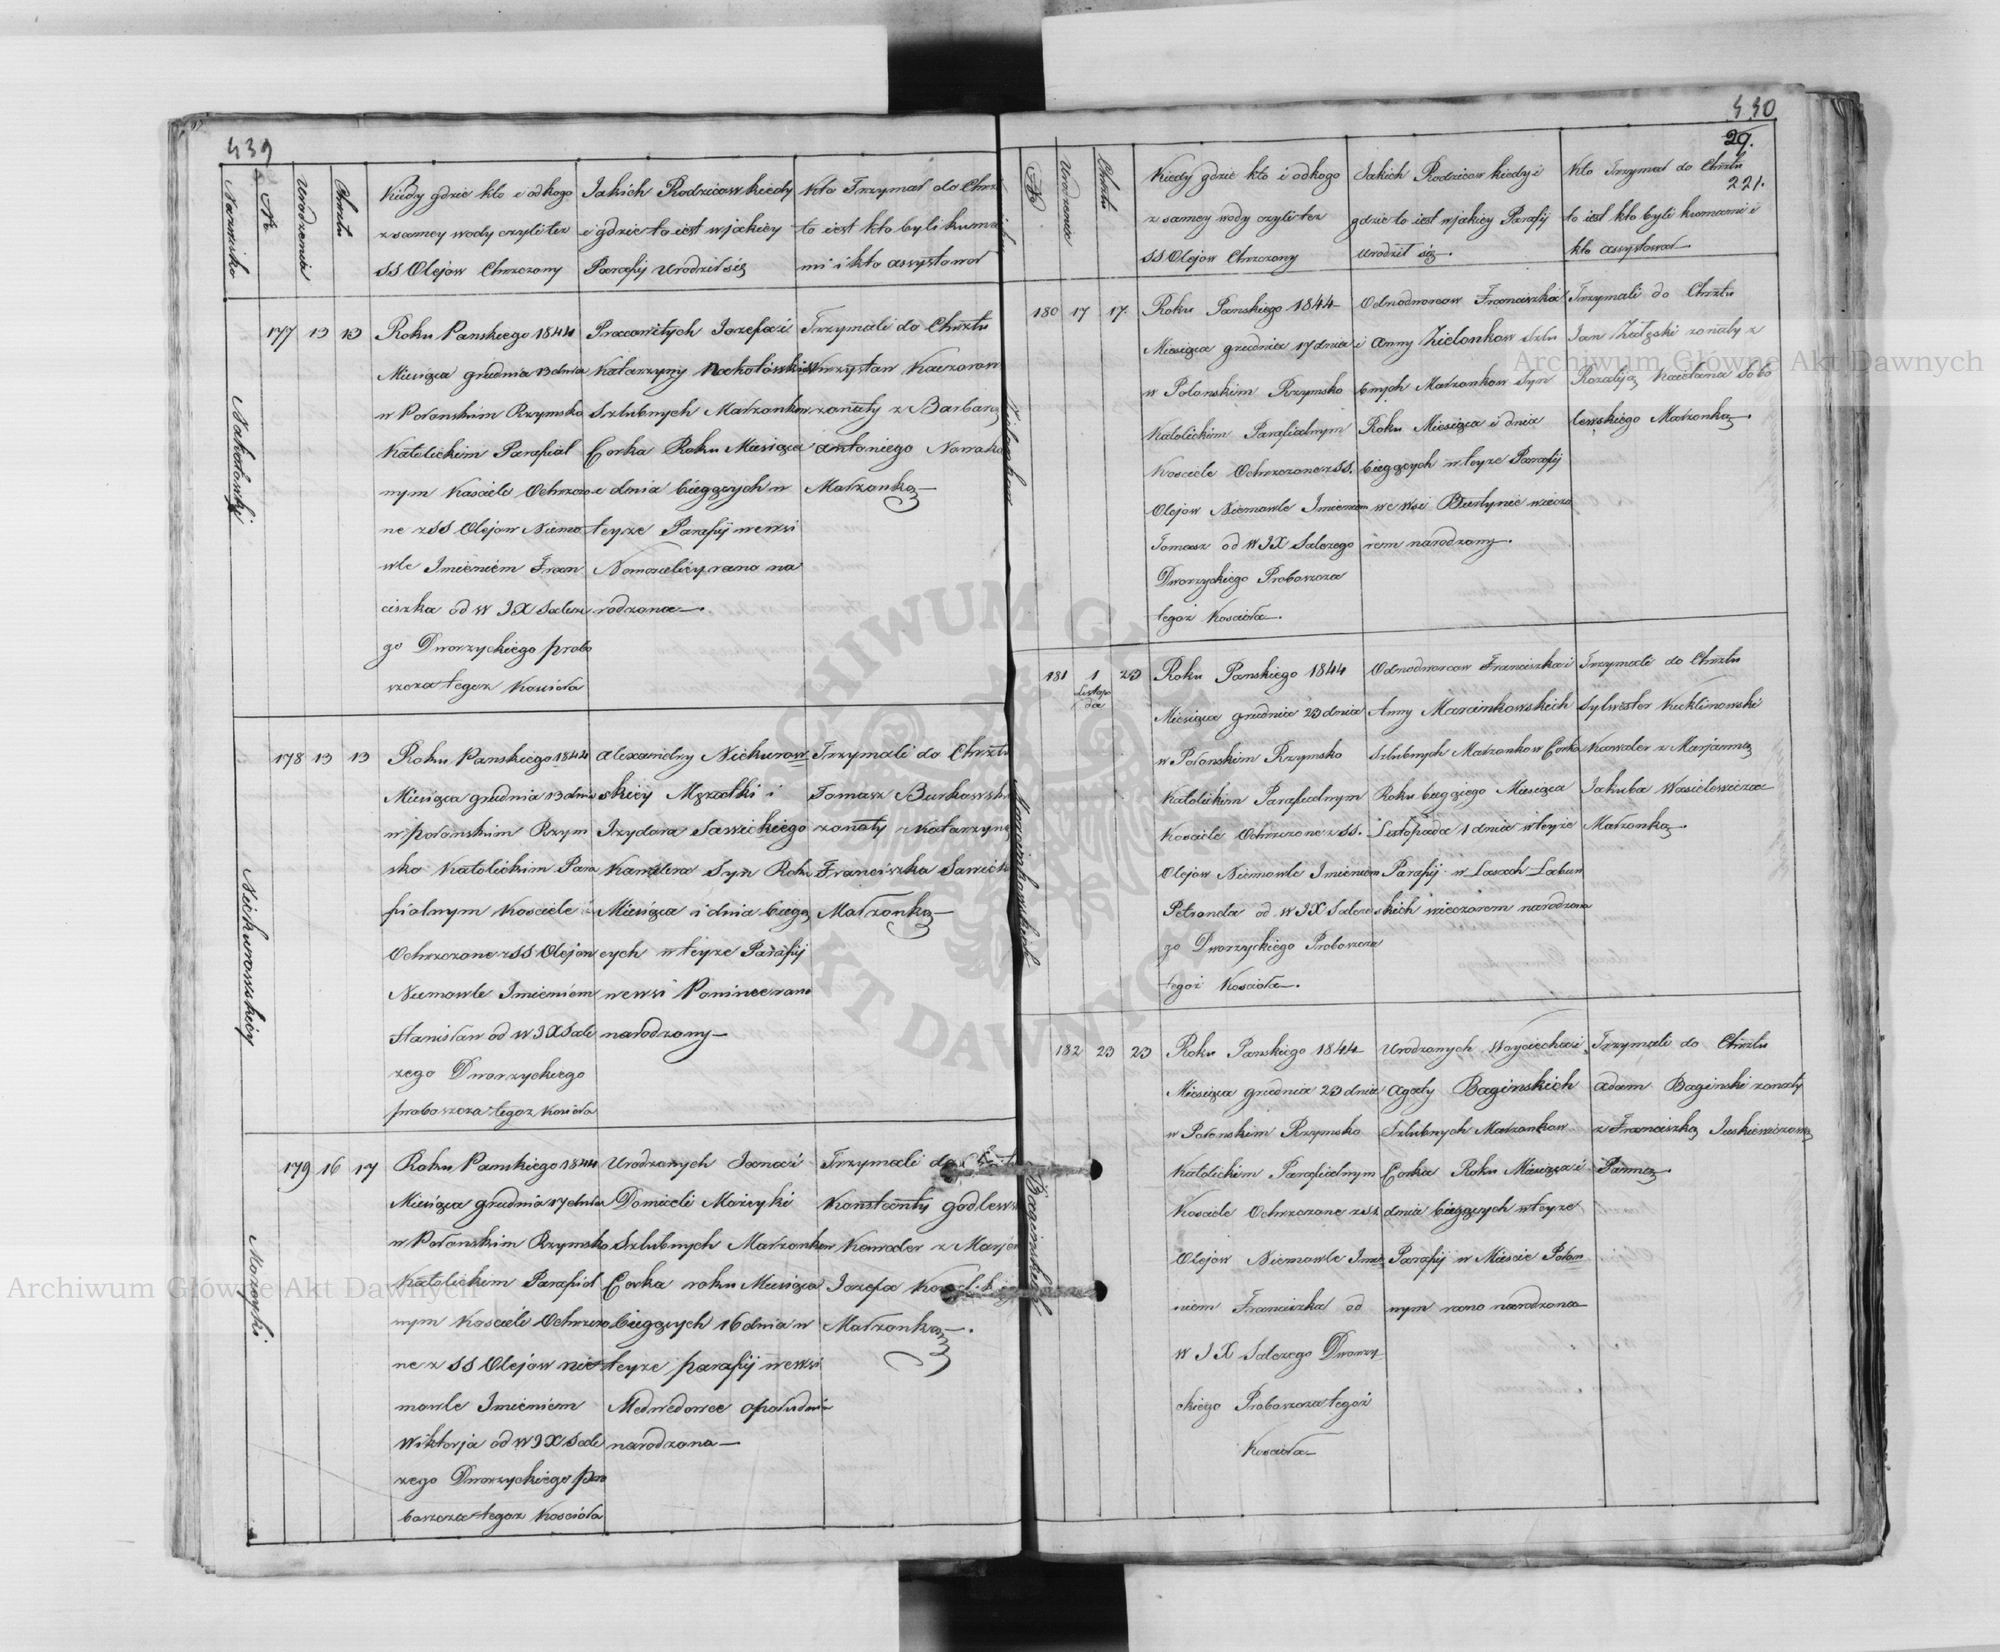 439
Nazwisko
Nr
Urodzenia
Chrztu
Kiedy gdzie kto i od kogo
z samey wody czyli tez
SS Olejow Chrzczony
Jakich Rodzicow kiedy
i gdzie to iest w jakiey
Parafij Urodził się
Kto Trzymał do Chrz
to iest kto byli kuma
mi i kto assystował
Nakotowski
177 13 13
Roku Panskiego 1844
Miesiąca grudnia 13 dnia
w Połonskim Rzymsko
Katolickim Parafial
nym Kosciele Ochrzczo
ne z SS Olejow Niemo
wle Imieniem Fran
ciszka od W JX Saleze
go Dworzyckiego probo
szcza tegoz Kosciola
Pracowitych Jozefa i
Katarzyny
Szlubnych Małzonkow
Corka Roku Miesiąca
i dnia biegących w
teyze Parafij we wsi
Nomozelicy rano na
rodzona
Trzymali do Chrztu
Krzysztow Kaczorow
zonaty z Barbarą
Antoniego Nowak
Małzonką
Niekurowskiey
178 13 13
Roku Panskiego 1844
Miesiąca grudnia 13 dnia
w połonskim Rzym
sko Katolickim Para
fialnym Kosciele
Ochrzczone z SS Olejow
Niemowle Imieniem
Stanisław od W JX Sale
zego Dworzyckiego
proboszcza tegoz Kosciola
Alexandry Niekurow
skiey Męzatki i
Izydora Sawickiego
Kawalera Syn Roku
Miesiąca i dnia biegą
cych w teyze Parafij
we wsi Ponince rano
narodzony
Trzymali do Chrztu
Tomasz Burkowski
zonaty z Katarzyną
Franciszka Sawick
Małzonką
Mozeyki
179 16 17
Roku Panskiego 1844
Miesiąca grudnia 17 dnia
w Połonskim Rzymsko
Katolickim Parafial
nym Kosciele Ochrzczo
ne z SS Olejow nie
mowle Imieniem
Wiktorja od W JX Sale
zego Dworzyckiego pro
boszcza tegoz Kosciola
Urodzonych Jana i
Domiceli Mozeyki
Szlubnych Małzonkow
Corka roku Miesiąca
biegących 16 dnia w
teyze parafij we wsi
Medwedowce opołudniu
narodzona
Trzymali do
Konstanty Godlews
Kawaler z Marja
Jozefa
Małzonką
440
29.
221.
Nr
Urodzenia
Chrztu
Kiedy gdzie kto i od kogo
z samey wody czyli tez
SS Olejow Chrzczony
Jakich Rodzicow kiedy i
gdzie to iest w jakiey Parafij
urodził się.
Kto Trzymał do Chrztu
to iest kto byli kumami i
kto assystował
Zielonkow
180 17 17.
Roku Panskiego 1844
Miesiąca grudnia 17 dnia
w Połonskim Rzymsko
Katolickim Parafialnym
Kosciele Ochrzczone z SS.
Olejow Niemowle Imieniem
Tomasz od W JX Salezego
Dworzyckiego Proboszcza
tegoz Kosciola.
Odnodworcow Franciszka
i Anny Zielonkow Szlu
bnych Małzonkow Syn
Roku Miesiąca i dnia
biegących w teyze Parafij
we wsi Burtynie wieczo
rem narodzony.
Trzymali do Chrztu
Jan Załęski zonaty z
Rozalją Kaietana Sobo
lewskiego Małzonką.
Marcinkowskich
181 1 23
Listopa
da
Roku Panskiego 1844
Miesiąca grudnia 23 dnia
w Połonskim Rzymsko
Katolickim Parafialnym
Kosciele Ochrzczone z SS.
Olejow Niemowle Imieniem
Petronela od W JX Saleze
go Dworzyckiego Proboszcza
tegoz Kosciola.
Odnodworcow Franciszka i
Anny Marcinkowskich
Szlubnych Małzonkow Corka
Roku biegącego Miesiąca
Listopada 1 dnia w teyze
Parafij w Lasach Łabun
skich wieczorem narodzona
Trzymali do Chrztu
Sylwester Kuklinowski
Kawaler z Marjanną
Jakuba Wasilewicza
Małzonką.
Baginskich
182 23 23
Roku Panskiego 1844
Miesiąca grudnia 23 dnia
w Połonskim Rzymsko
Katolickim Parafialnym
Kosciele Ochrzczone z SS
Olejow Niemowle Imie
niem Franciszka od
W JX Salezego Dworzy
ckiego Proboszcza tegoz
Kosciola
Urodzonych Woyciecha i
Agaty Baginskich
Szlubnych Małzonkow
Corka Roku Miesiąca i
dnia biegących w teyze
Parafij w Miescie Połon
nym rano narodzona
Trzymali do Chrztu
Adam Baginski zonaty
z Franciszką Juskiewiczową
Panną
Archiwum Główne Akt Dawnych
Archiwum Główne Akt Dawnych
ARCHIWUM GŁÓWNE AKT DAWNYCH